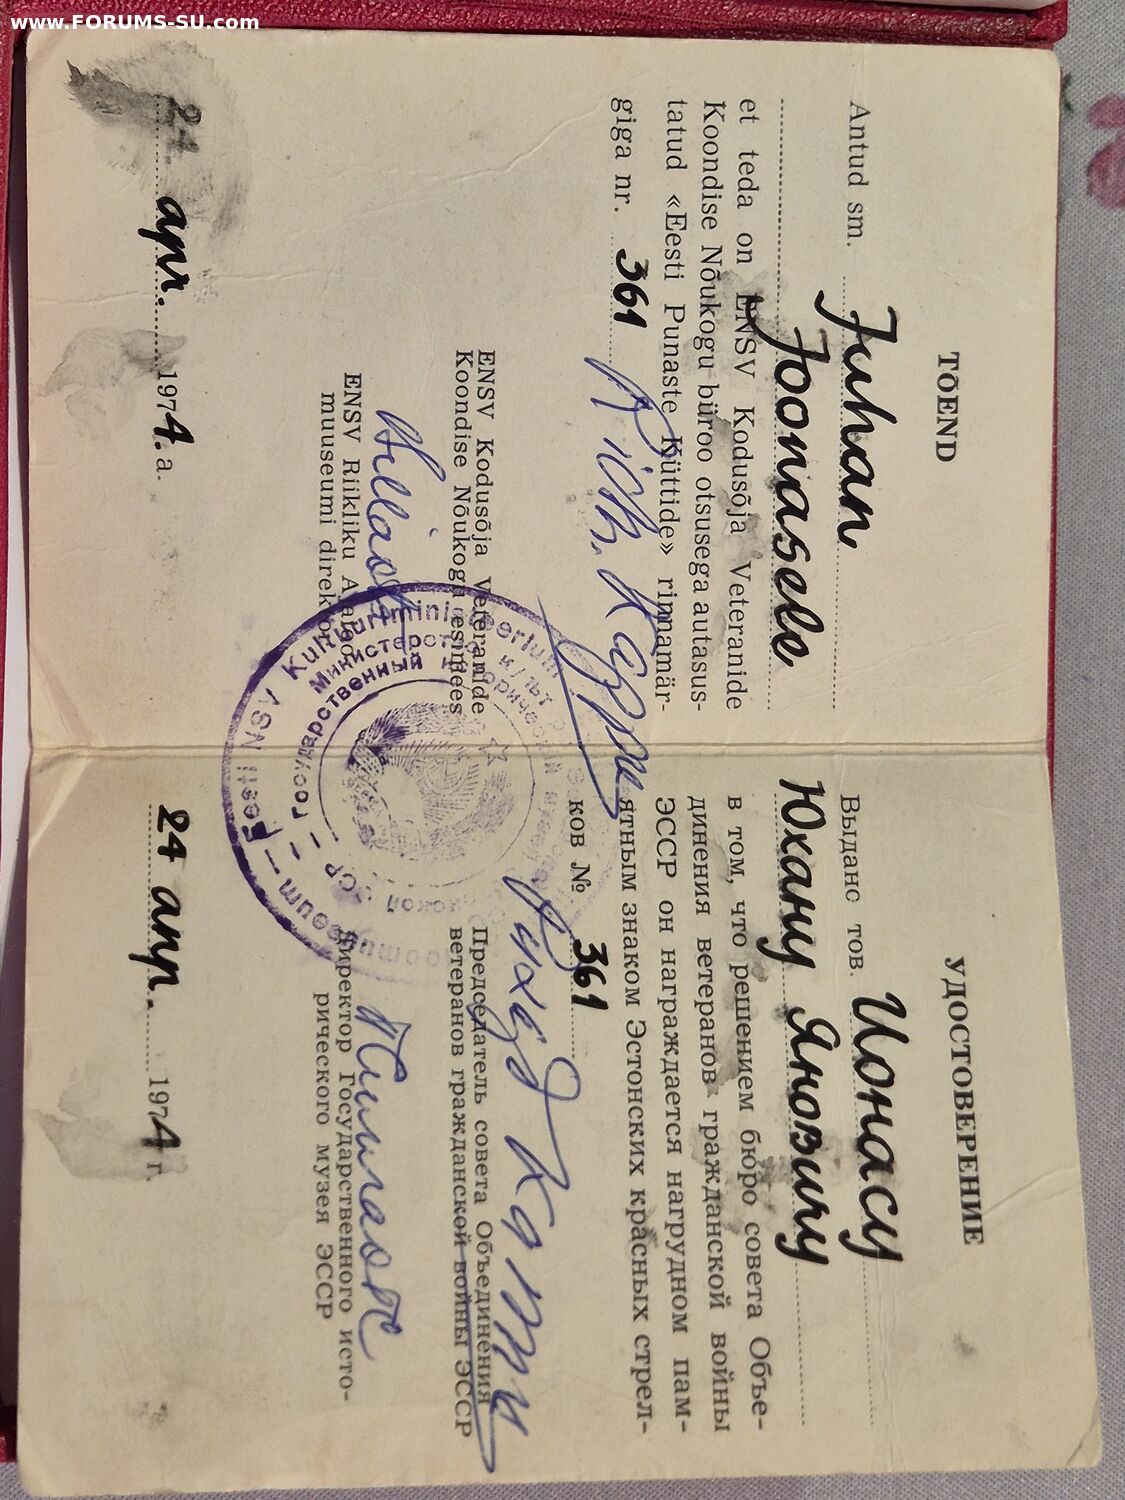 www.FORUMS-SU.com
TÕEND
Antud sm. Juhan
Joonasele
et teda on ENSV Kodusõja Veteranide
Koondise Nõukogu büroo otsusega autasus-
tatud «Eesti Punaste Küttide» rinnamär-
giga nr. 361
Rich. Kappi
ENSV Kodusõja Veteranide
Koondise Nõukogu esimees
ENSV Riikliku Ajaloo-
muuseumi direktor
24. apr. 1974. a.
УДОСТОВЕРЕНИЕ
Выдано тов. Йонасу
Юхану Яновичу
в том, что решением бюро совета Объе-
динения ветеранов гражданской войны
ЭССР он награждается нагрудном пам-
ятным знаком Эстонских красных стрел-
ков № 361
Рихард Каппи
Председатель совета Объединения
ветеранов гражданской войны ЭССР
Директор Государственного исто-
рического музея ЭССР
24 апр. 1974 г.
Eesti NSV Kultuuriministeerium
Государственный